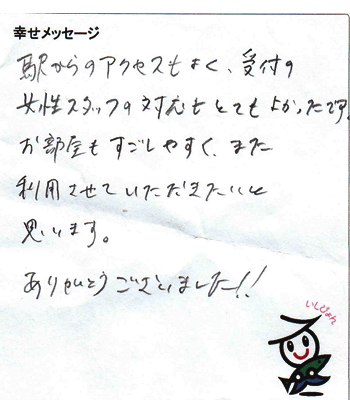 幸せメッセージ
駅からのアクセスもよく、受付の
女性スタッフの対応もとてもよかったです。
お部屋もすごしやすく、また
利用させていただきたいと
思います。
ありがとうございました!!
いしぴょん